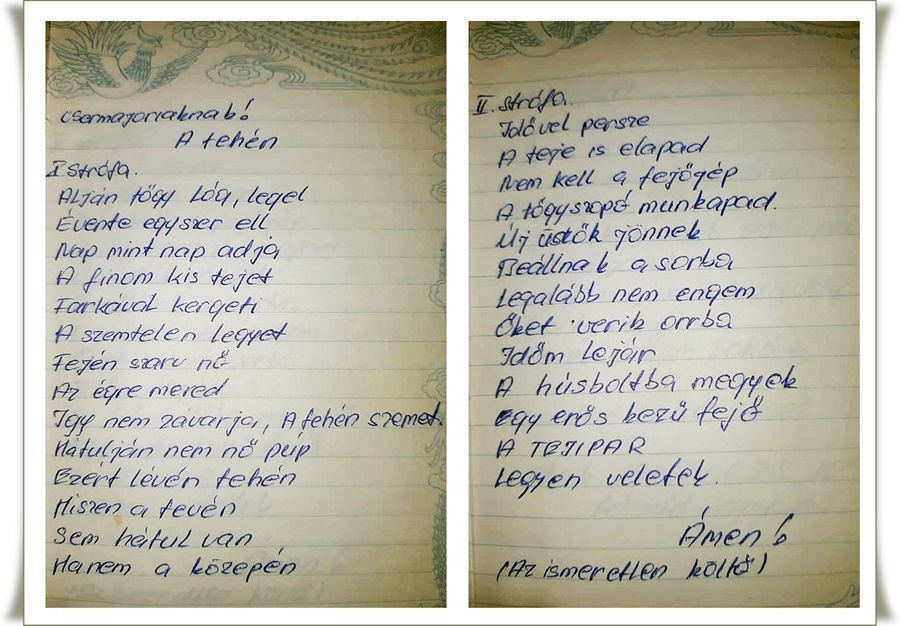 csermajorraknabó!
A tehén
I. strófa.
Alján tőgy lóg, legel
Évente egyszer ell
Nap mint nap adja
A finom kis tejet
Farkával kergeti
A szemtelen legyet
Fején szarv nő
Az égre mered
Igy nem zavarja, A tehén szemet.
Hátulján nem nő púp
Ezért lévén tehén
Hiszen a tevén
Sem hátul van
Hanem a közepén
II. strófa.
Idővel persze
A teje is elapad
Nem kell a fejőgép
A tőgyszopó munkapad.
Új üstök jönnek
Beállnak a sorba
Legalább nem engem
Őket verik orrba
Időm lejár
A húsboltba megyek
Egy erős bezű fejő
A TEJIPAR
Legyen veletek.
Ámen
(Az ismeretlen költő)